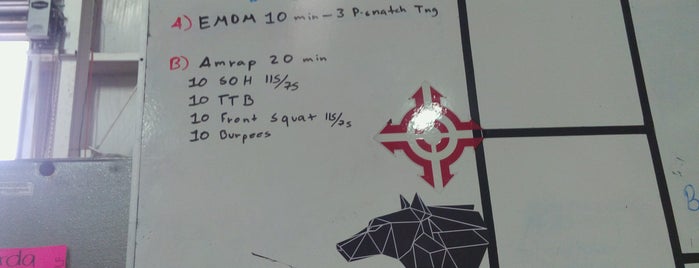 A) EMOM 10 min - 3 P-snatch Tng
B) Amrap 20 min
10 SOH 115/75
10 TTB
10 Front squat 115/75
10 Burpees
rda
B